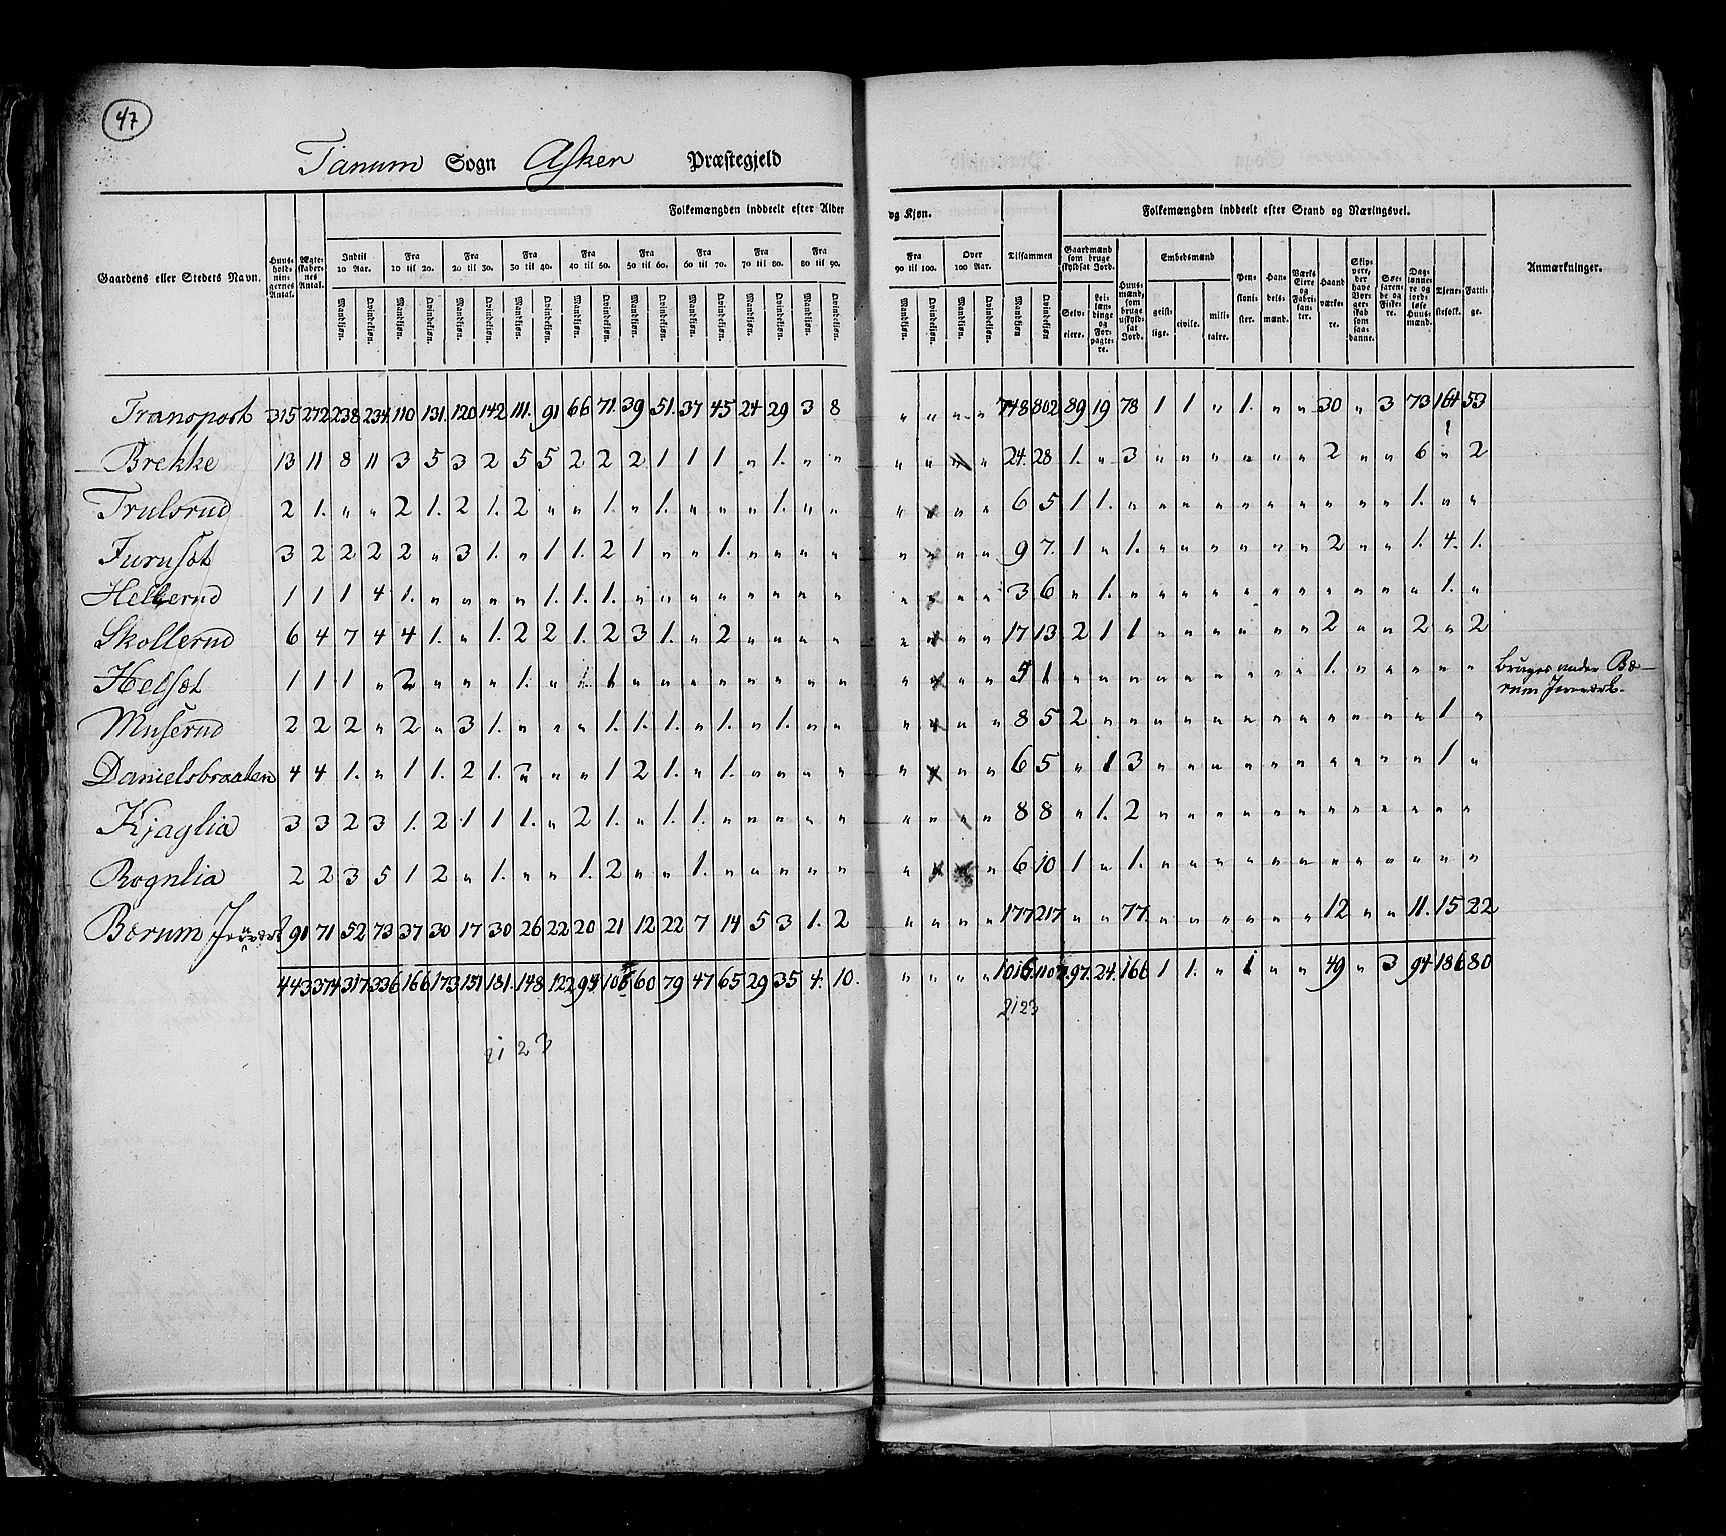 47
Tanum Sogn Asker Præstegjeld
Folkemængden inddeelt efter Alder og Kjøn. Folkemængden inddeelt efter Stand og Næringsvei.
Gaardens eller Stedets Navn. Huusholdningernes Antal. Ægteskabernes Antal. Indtil 10 Aar. Fra 10 til 20. Fra 20 til 30. Fra 30 til 40. Fra 40 til 50. Fra 50 til 60. Fra 60 til 70. Fra 70 til 80. Fra 80 til 90. Fra 90 til 100. Over 100 Aar. Tilsammen Gaardmænd som bruge skyldsat Jord. Huusmænd, som bruge uskyldsat Jord. Embedsmænd Pensionister. Handelsmænd. Værks Eiere og Fabrikanter. Haandværkere. Skippere, der have Borgerskab som saadanne. Søefarende og Fiskere. Daglønnere og jordløse Huusmænd. Tjenestefolk. Fattige. Anmærkninger.
Mandkjøn. Qvindekjøn. Mandkjøn. Qvindekjøn. Mandkjøn. Qvindekjøn. Mandkjøn. Qvindekjøn. Mandkjøn. Qvindekjøn. Mandkjøn. Qvindekjøn. Mandkjøn. Qvindekjøn. Mandkjøn. Qvindekjøn. Mandkjøn. Qvindekjøn. Mandkjøn. Qvindekjøn. Mandkjøn. Qvindekjøn. Mandkjøn Qvindekjøn. Selveiere. Leilændinge og Forpagtere. geistlige. civile. militaire.
Transport 315 272 238 234 110 131. 120 142 111. 91 66 71. 39 51. 37 45 24 29 3 8 " " " " 748 802 89 19 78 1 1 " 1. " " 30 " 3 73 164 53
Brekke 13 11 8 11 3 5 3 2 5 5 2 2 2 1 1 1 " 1. " " " " " " 24. 28 1. " 3 " " " " " " 2 " " 6 " 2
Trulsrud 2 1. " " 2 1. 2 1. 2 " " 1. " 1. " " " 1. " " " " " " 6 5 1 1. " " " " " " " " " " 1. " "
Furuset 3 2 2 2 2 " 3 1. " 1 1. 2 1 " " 1. " " " " " " " " 9 7. 1 " 1. " " " " " " 2 " " 1. 4. 1.
Hellerud 1 1 1 4 1. " " " " 1. 1. 1. " " " " " " " " " " " " 3 6 " 1. " " " " " " " " " " " 1. "
Skollerud 6 4 7 4 4 1. " 1. 2 2 1. 2 3 1. " 2 " " " " " " " " 17 13 2 1 1 " " " " " " 2 " " 2 " 2
Helset 1 1 1 " 2 " " " 1. " 1. 1 " " " " " " " " " " " " 1 " " " " " " " " " 1. " " " " " Bruges under Bærum Jernværk.
Muserud 2 2 2 " 2 " 3 1. " " " 1. 1. 1. " 1. " 1. " " " " " " 8 5 2 " " " " " " " " " " " " 1 "
Danielsbraaten 4 4 1. " 1 1. 2 1. " " 1 2 1. " 1. " " " " " " " " 6 5 " 1 3 " " " " " " " " " " 1 "
Kjaglia 3 3 2 3 1. 2 1 1 1. " 2 1. " 1. 1. " " " " " " " " " 8 8 " 1. 2 " " " " " " " " " " " "
Rognlia 2 2 3 5 1 2 " 1. " " 1. 2 " " 1. " " " " " " " " " 6 10 1 " 1. " " " " " " " " " " " "
Bærum Jernværk 91 71 52 73 37 30 17 30 26 22 20 21 12 22 7 14 5 3 1. 2 " " " " 177 217 " " 77 " " " " " " 12 " " 11. 15 22
443 374 317 336 166 173 151 181. 148 122 94 106 60 79 47 65 29 35 4. 10. " " " " 1016 1107 97. 24. 166 1 1. " 1 " " 49 " 3 94 186 80
2123
2123